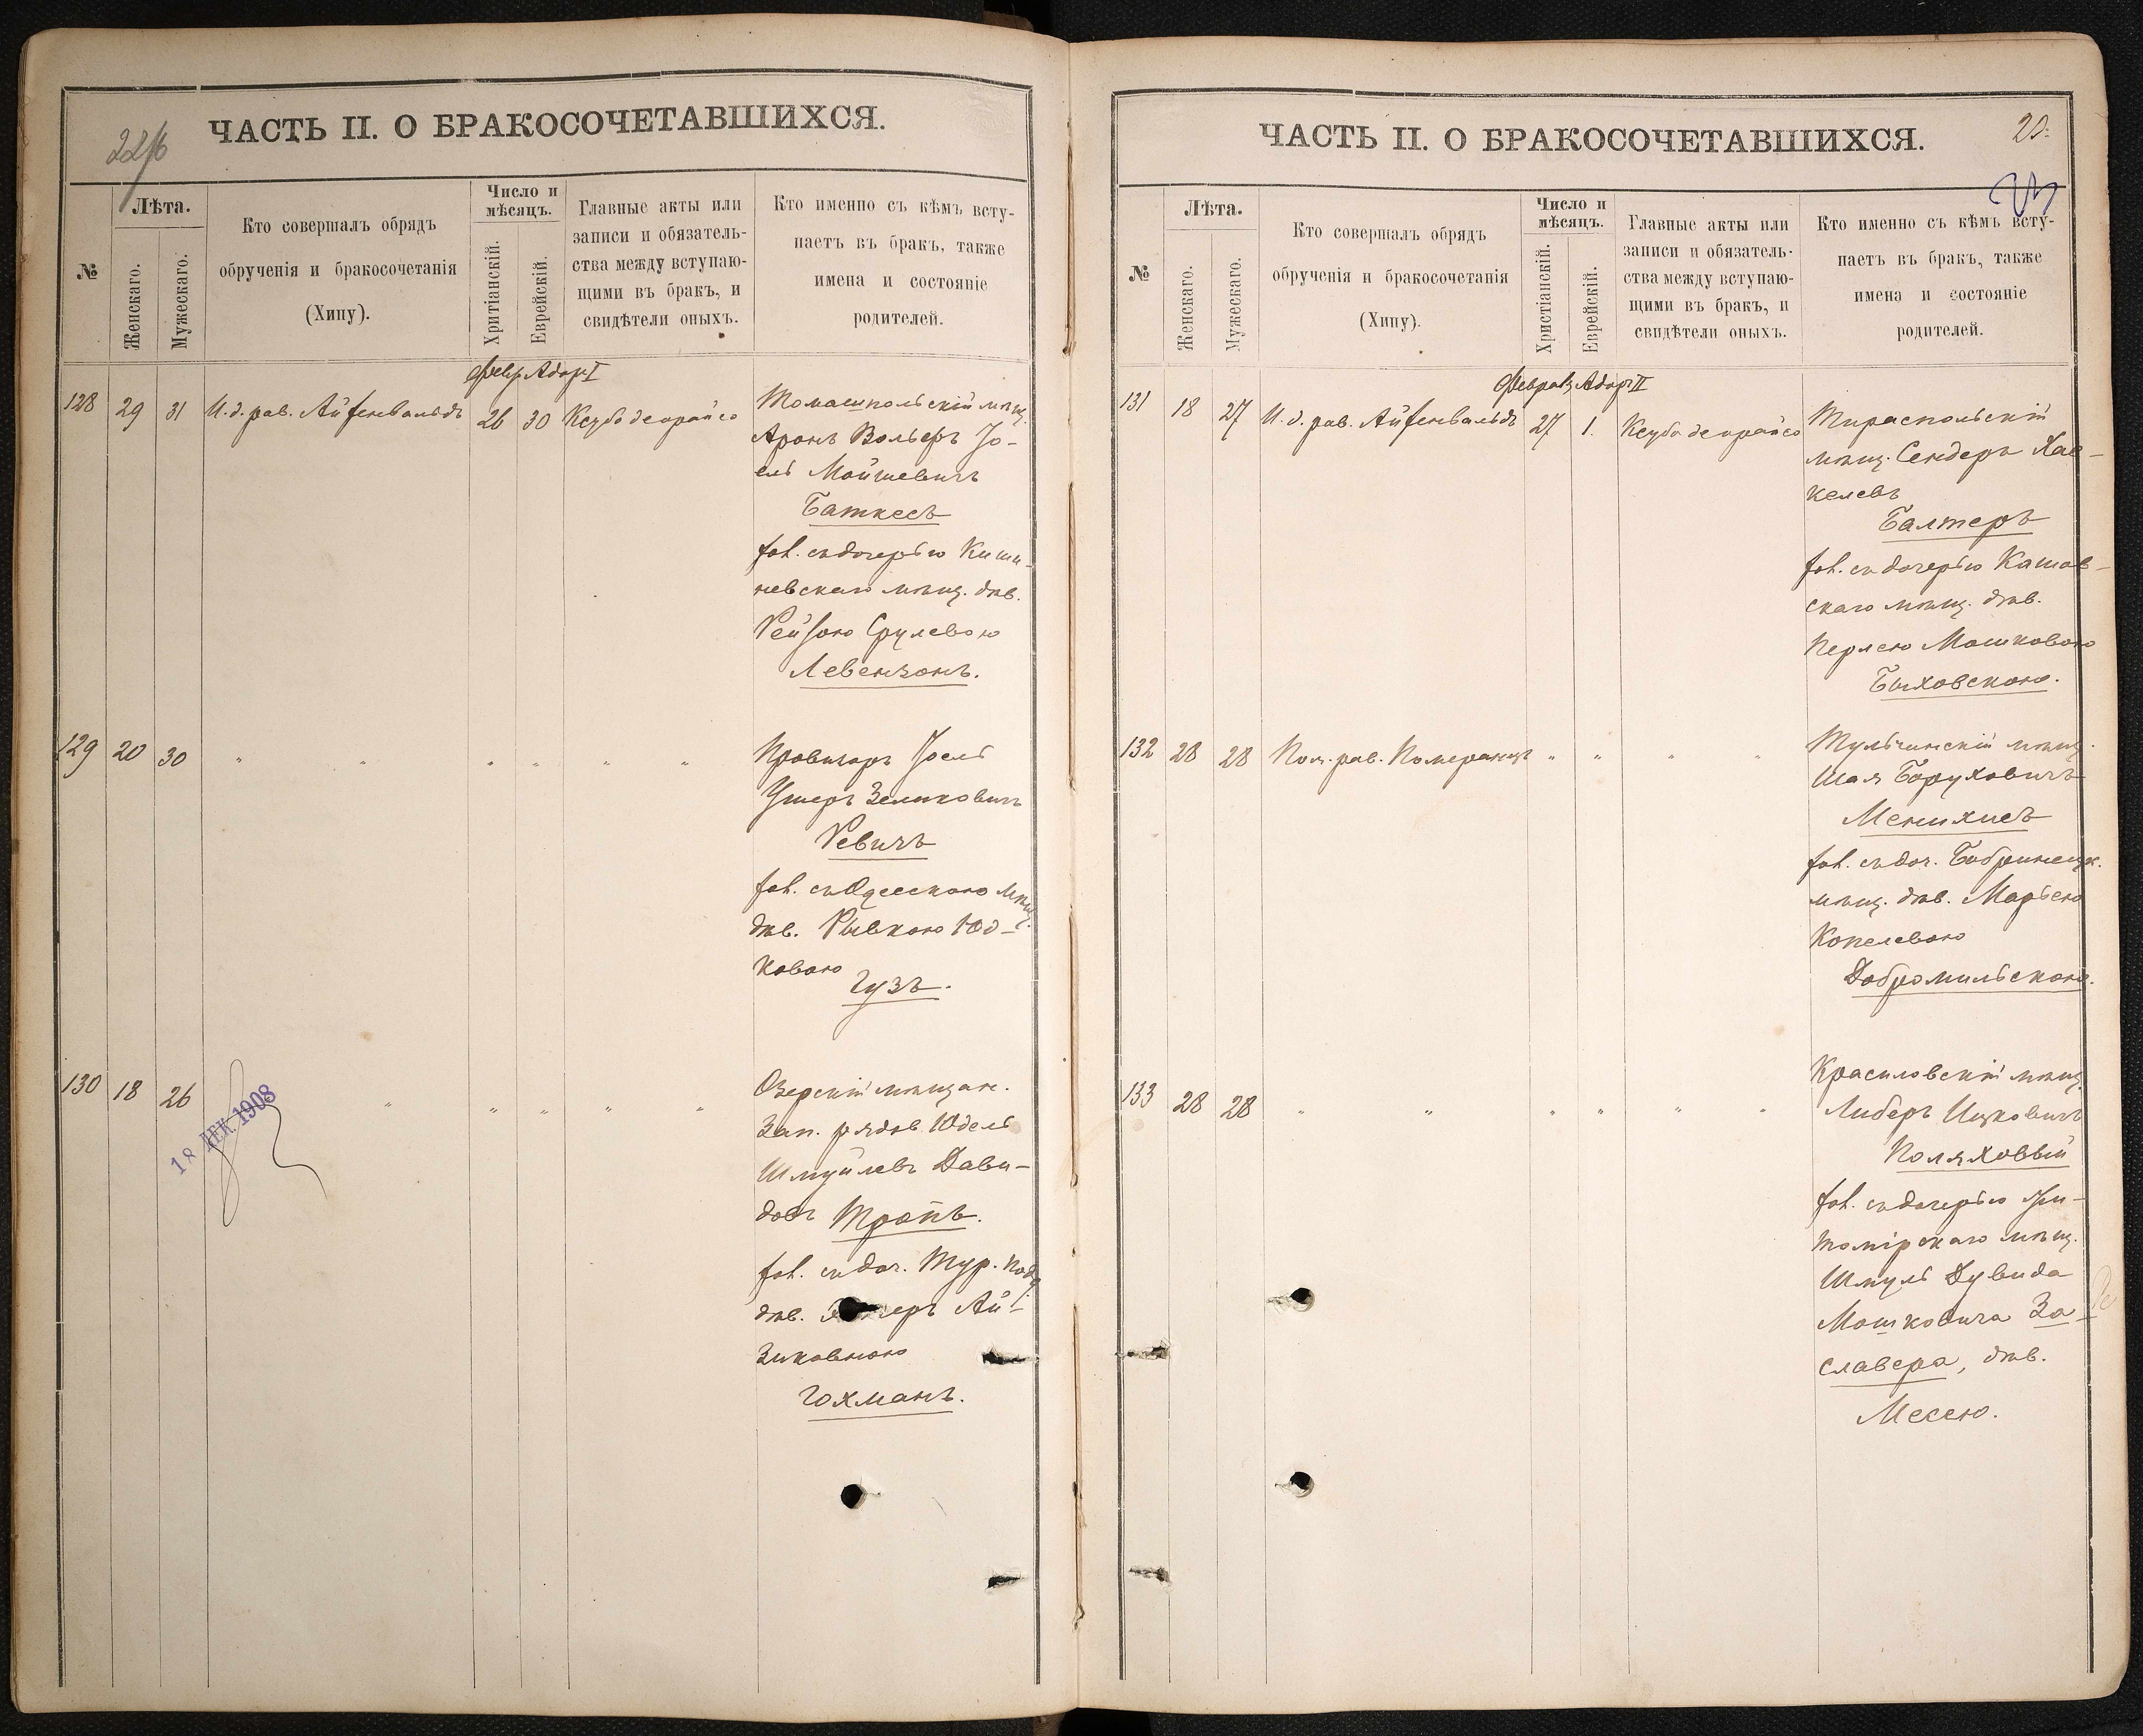 22/б
ЧАСТЬ II. О БРАКОСОЧЕТАВШИХСЯ.
№
Лѣта.
Женскаго.
Мужескаго.
Кто совершалъ обрядъ
обрученія и бракосочетанія
(Хипу).
Число и
мѣсяцъ.
Хритіанскій.
Еврейскій.
Главные акты или
записи и обязатель-
ства между вступаю-
щими въ бракъ, и
свидѣтели оныхъ.
Кто именно съ кѣмъ всту-
паетъ въ бракъ, также
имена и состояніе
родителей.
Февр. Адаръ I
128 29 31 И.д. рав. Айзенвальдъ 26 30 Ксуба деорайсо
Томашпольскій мѣщ.
Аронъ Вольфъ Іо-
ель Мойшевичъ
Баткесъ
хол. съ дочерью Киши-
невскаго мѣщ. дѣв.
Рейзою Срулевою
Левензонъ.
129 20 30 " " " " " "
Провизоръ Іосель
Ушеръ Зеликовичъ
Ревичъ
хол. съ Одесскою мѣщ.
дѣв. Рывкою Юд-
ковою
Гузъ.
130 18 26 " " " " "
18 ДЕК 1908
Озерскій мѣщан.
Зап. рядов. Юдель
Шмуйлевъ Дави-
довъ Тропъ.
хол. съ доч. Тур. подд.
дѣв. Ай-
зиковною
Гохманъ.
ЧАСТЬ II. О БРАКОСОЧЕТАВШИХСЯ.
23
№
Лѣта.
Женскаго.
Мужескаго.
Кто совершалъ обрядъ
обрученія и бракосочетанія
(Хипу).
Число и
мѣсяцъ.
Христіанскій.
Еврейскій.
Главные акты или
записи и обязатель-
ства между вступаю-
щими въ бракъ, и
свидѣтели оныхъ.
Кто именно съ кѣмъ всту-
паетъ въ бракъ, также
имена и состояніе
родителей.
Феврал. Адаръ II
131 18 27 И.д. рав. Айзенвальдъ 27 1. Ксуба деорайсо
Тираспольскій
мѣщ. Сендеръ Хас-
келевъ
Балтеръ
хол. съ дочерью Кашов-
скаго мѣщ. дѣв.
Перлею Мошковою
Быховскою.
132 28 28 Пом. рав. Померанцъ " " " "
Тульчинскій мѣщ.
Шая Боруховичъ
Менихисъ
хол. съ доч. Бобринецк.
мѣщ. дѣв. Марьею
Копелевою
Добромильскою.
133 28 28 " " " " " "
Красиловскій мѣщ.
Либеръ Ицковичъ
Поляховый
хол. съ дочерью Жи-
томірскаго мѣщ.
Шмуль Дувида
Мошковича За-
славера, дѣв.
Месею.